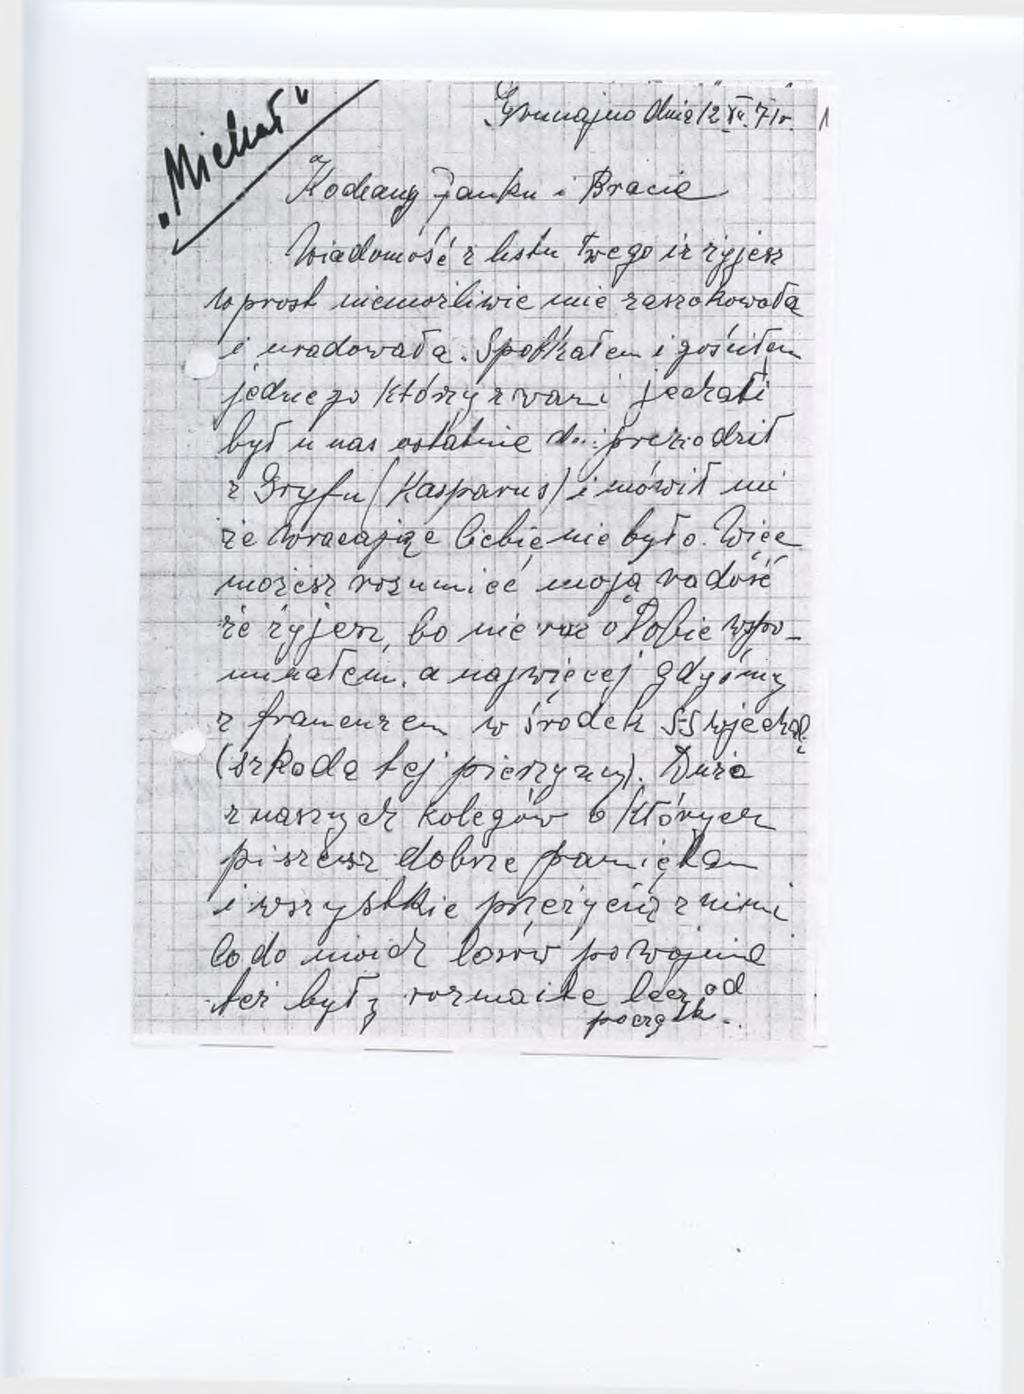 "Michał"
Gronajno dnia 12 XII. 71r. 1
Kochany Janku i Bracie
Wiadomość z listu Twego iż żyjesz
poprost niemożliwie mie zaszokowała
i uradowała. Spotkałem i gościłem
jednego który z wami jechali
był u nas ostatnie przewodził
z Gryfu (Kasparus) i mówił mi
że wracając Ciebie nie było. Więc
możesz rozumieć moją radość
że żyjesz, bo nie raz o Tobie wspo-
minałem, a najwięcej gdyśmy
z francuzem w środek SS wjechali
(szkoda tej pierzyny). Dużo
z naszych kolegów o których
piszesz dobrze pamiętam
i wszystkie przeżycia z nimi
Co do moich losów po wojnie
też były rozmaite lecz od
początk..